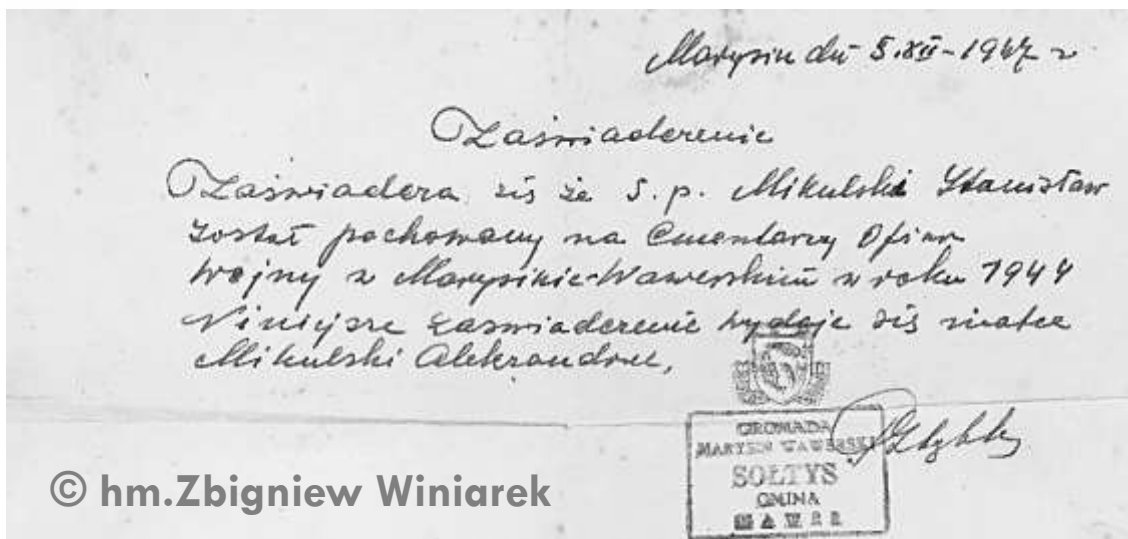 Marysin dn 5.XII-1947 r
Zaświadczenie
Zaświadcza się że ś.p. Mikulski Stanisław
został pochowany na Cmentarzu Ofiar
Wojny w Marysinie-Wawerskim w roku 1944
Niniejsze zaświadczenie wydaje się matce
Mikulski Aleksandrze,
GROMADA
MARYSIN WAWERSKI
SOŁTYS
GMINA
WAWER
© hm.Zbigniew Winiarek